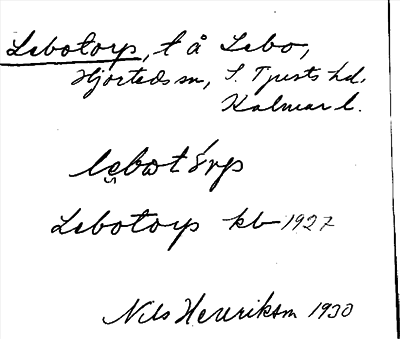 Lebotorp, t å Lebo,
Hjorteds sn, S. Tjusts hd.
Kalmar l.
Lebotorp kb 1927
Nils Henriksm 1930